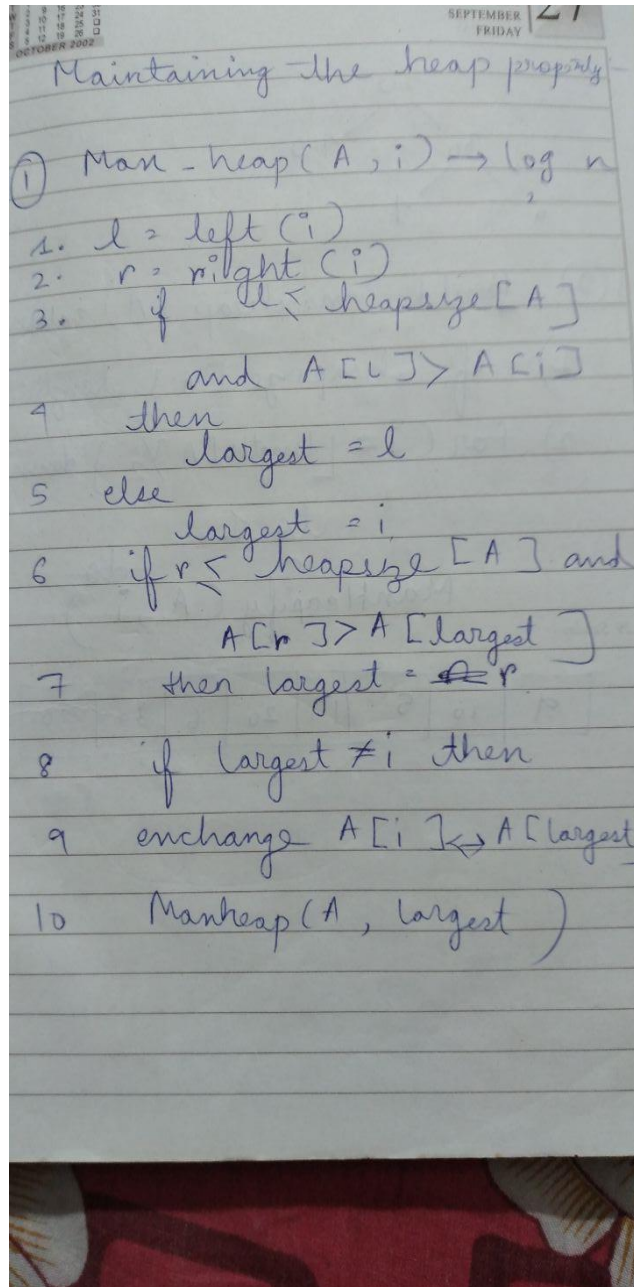 SEPTEMBER 27
FRIDAY
OCTOBER 2002
Maintaining the heap property
① Max-heap(A, i) → log n
1. l = left (i)
2. r = right (i)
3. if l ≤ heapsize [A]
and A[L] > A[i]
4 then
largest = l
5 else
largest = i
6 if r ≤ heapsize [A] and
A[r] > A [largest]
7 then largest = r
8 if largest ≠ i then
9 exchange A[i] ↔ A[largest
10 Maxheap(A, largest)